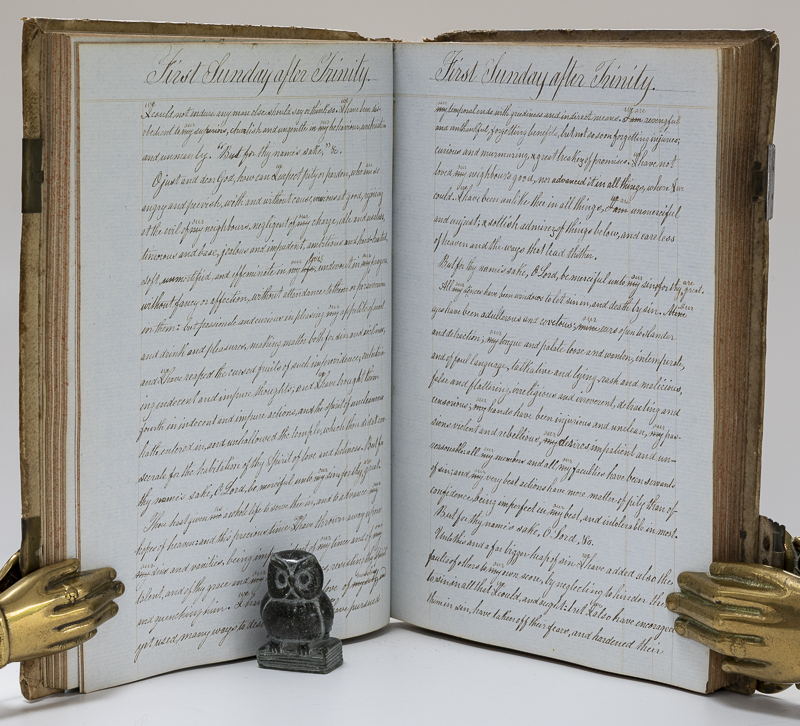 First Sunday after Trinity.
we I could not endure any man else should say or think so. we I have been dis-
obedient to our my superiors, churlish and ungentle in our my behaviour, unchristian
and unmanly. "But for thy name's sake," &c.
O just and dear God, how can we I expect pity or pardon, who am so
angry and peevish, with and without cause, envious at good, rejoicing
at the evil of our my neighbours, negligent of our my charge, idle and useless,
timorous and base, jealous and impudent, ambitious and hard-hearted,
soft, unmortified, and effeminate in our my lives life, undevout in our my prayers,
without fancy or affection, without attendance to them or perseverance
in them: but passionate and curious in pleasing our my appetite of meat
and drink and pleasures, making matter both for sin and sickness,
and we I have reaped the cursed fruits of such improvidence, entertain-
ing indecent and impure thoughts; and we I have brought them
fourth in indecent and impure actions, and the spirit of uncleanness
hath entered in, and unhallowed the temple, which thou didst con-
secrate for the habitation of thy Spirit of love and holiness. But for
thy name's sake, O Lord, be merciful unto our my sin, for thy great.
Thou hast given us me a whole life to serve thee in, and to advance our my
hopes of heaven: and this precious time we I have thrown away upon
our my sins and vanities, being improvident of our my time and of our my
talent, and of thy grace and our my
and quenching him. I have
yet used, many ways to
First Sunday after Trinity.
our my temporal ends with greediness and indirect means. we are I am revengful
and unthankful, forgetting benefits, but not so soon forgetting injuries;
curious and murmuring, a great breaker of promises. we I have not
loved our my neighbour's good, nor advanced it in all things, where we I
could. we I have been unlike thee in all things, we are I am unmerciful
and unjust; a sottish admirer of things below, and careless
of heaven and the ways that lead thither.
But for thy name's sake, O Lord, be merciful unto our my sin, for they are great.
All our my senses have been windows to let sin in, and death by sin. our Mine
eyes have been adulterous and covetous; our mine ears open to slander
and detraction; our my tongue and palate loose and wanton, intemperate,
and of foul language, talkative and lying, rash and malicious,
false and flattering, irreligious and irreverent, detracting and
censorious; our my hands have been injurious and unclean, our my pas-
sions violent and rebellious, our my desires impatient and un-
reasonable; all our my members and all our my faculties have been servants
of sin; and our my very best actions have more matter of pity than of
confidence, being imperfect in our my best, and intolerable in most.
But for thy name's sake, O Lord, &c.
Unto this and a far bigger heap of sin we I have added also the
faults of others to our my own score, by neglecting to hinder them
to sin in all that we I could, and ought: but we I also have encouraged
them in sin, have taken off their fears, and hardened their